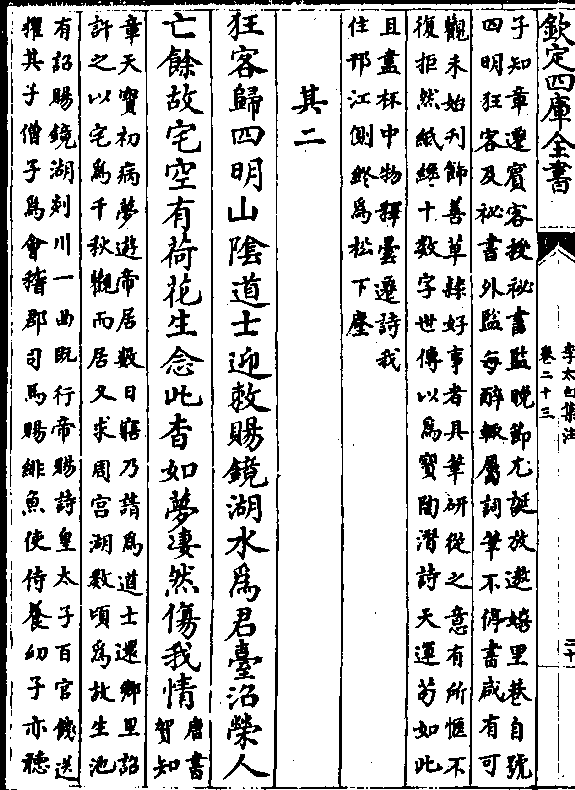 欽定四庫全書
李太白集注
卷二十三
二十
子知章遷賓客授祕書監晚節尤誕放遨嬉里巷自號
四明狂客及祕書外監每醉輒屬詞筆不停書咸有可
觀未始刋飾善草隸好事者具筆研從之意有所愜不
復拒然紙纔十數字世傳以為寶陶潛詩天運苟如此
且盡杯中物釋曇遷詩我
住邗江側終為松下塵
其二
狂客歸四明山陰道士迎敕賜鏡湖水為君臺沼榮人
亡餘故宅空有荷花生念此杳如夢淒然傷我情
唐書
賀知
章天寶初病夢遊帝居數日寤乃請為道士還鄉里詔
許之以宅為千秋觀而居又求周宫湖數頃為放生池
有詔賜鏡湖剡川一曲既行帝賜詩皇太子百官餞送
擢其子僧子為會稽郡司馬賜緋魚使侍養幼子亦聽